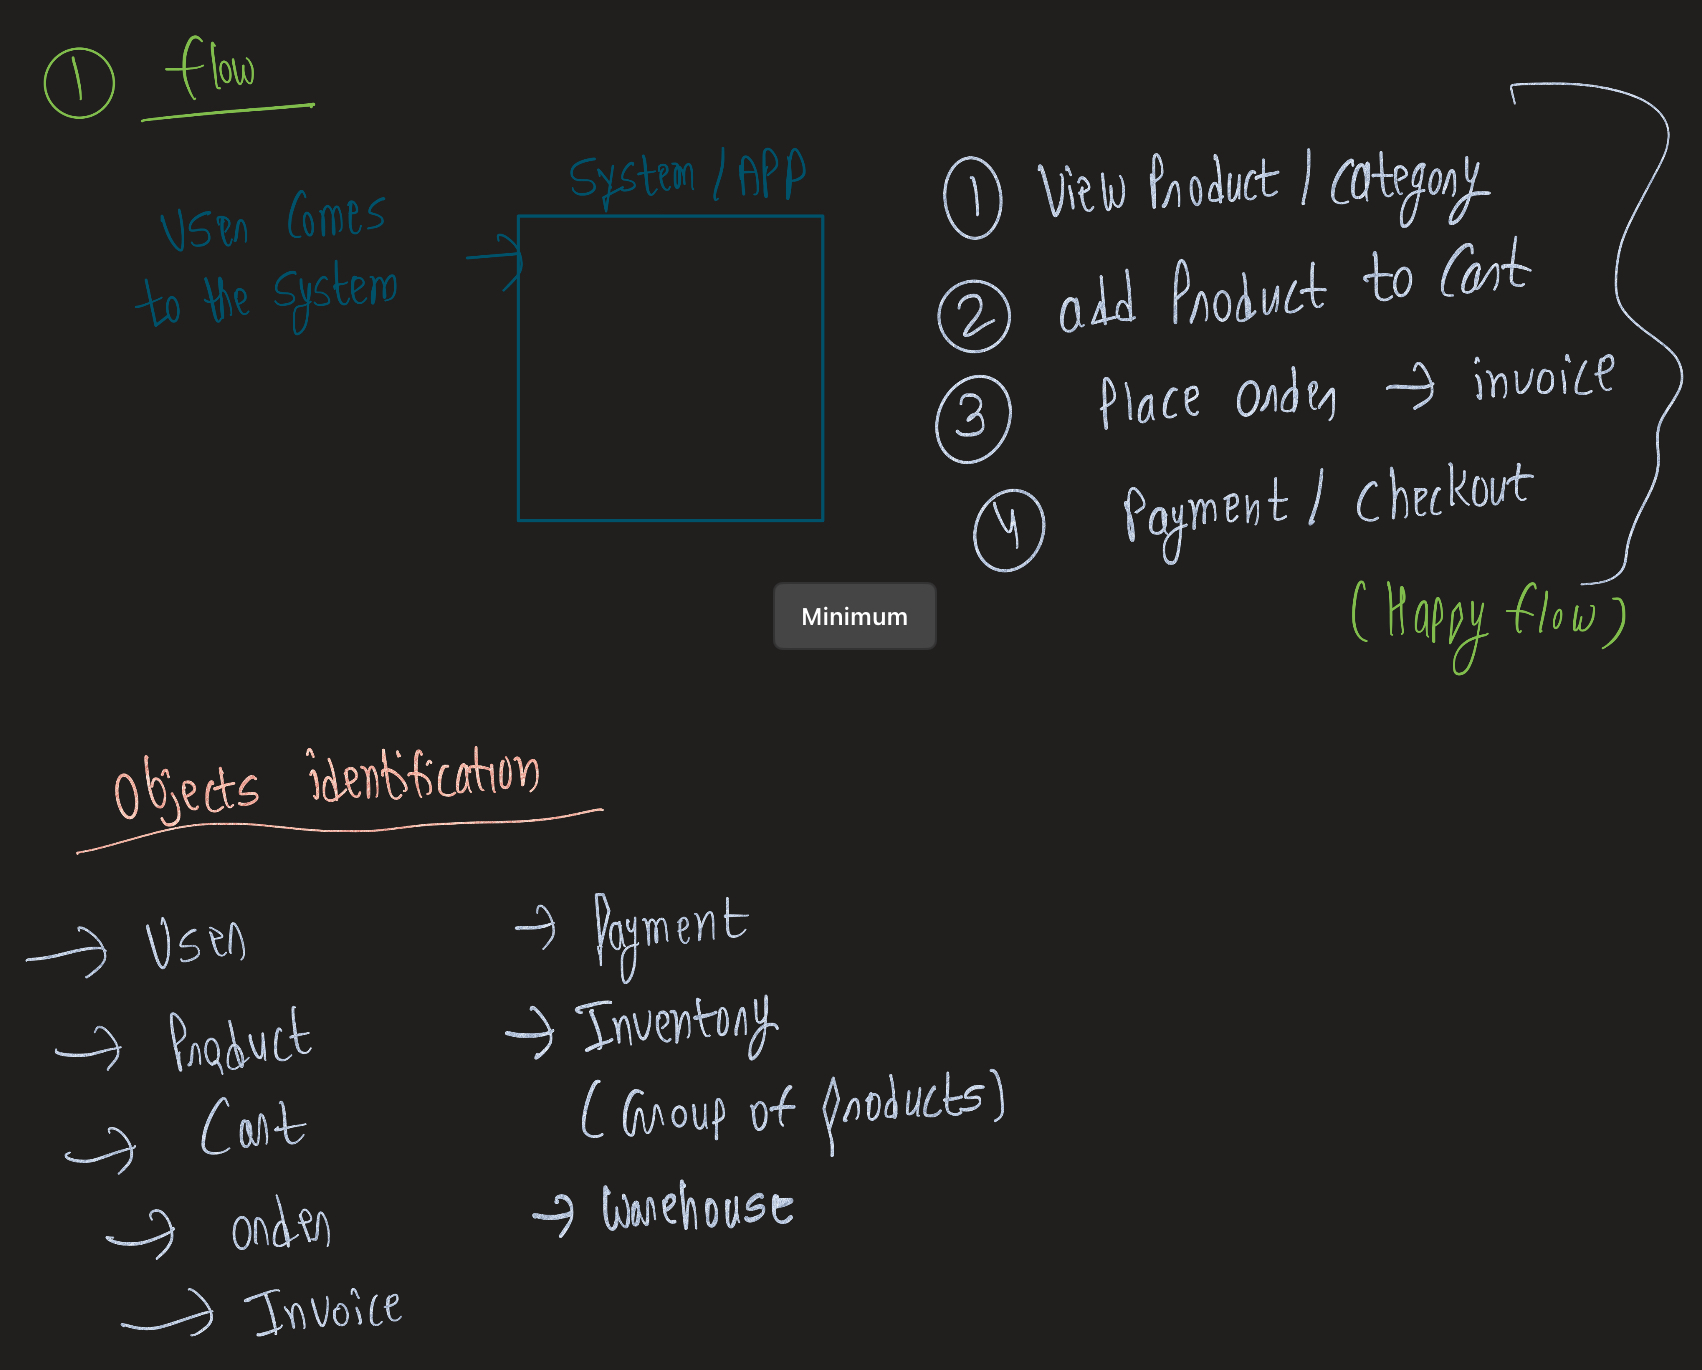 1 flow
System / APP
User Comes
to the System
1 View Product / Category
2 add Product to Cart
3 Place order → invoice
4 Payment / Checkout
(Happy flow)
Minimum
Objects identification
→ User
→ Product
→ Cart
→ order
→ Invoice
→ Payment
→ Inventory
(Group of products)
→ Warehouse